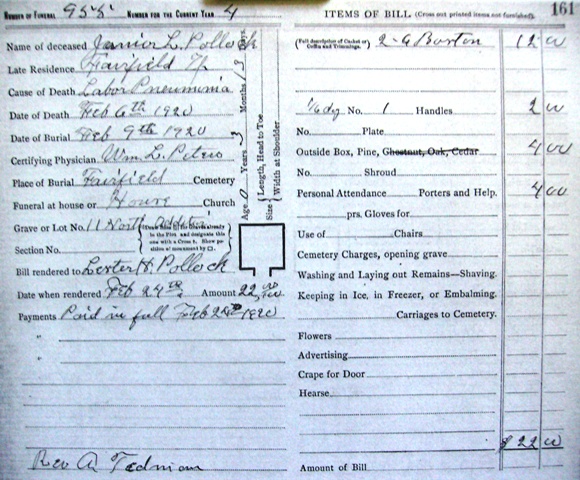 NUMBER OF FUNERAL 958 NUMBER FOR THE CURRENT YEAR 4
Name of deceased Junior L. Pollock
Late Residence Fairfield Tp
Cause of Death Labor Pneumonia
Date of Death Feb 6th 1920
Date of Burial Feb 9th 1920
Certifying Physician Wm. L. Peters
Place of Burial Fairfield Cemetery
Funeral at house or House Church
Grave or Lot No. 11 North Addition
(Draw lines for Graves already in the Plot, and designate this one with a Cross †. Show position of monument by □.
Section No.
Bill rendered to Lester H. Pollock
Date when rendered Feb 24th Amount 22.00
Payments Paid in full Feb 24th 1920
"
"
Rev A Tedman
Age 0 Years 3 Months 13 Days
Size { Length, Head to Toe
Width at Shoulder
161
ITEMS OF BILL (Cross out printed items not furnished).
(Full description of Casket or Coffin and Trimmings. 2-6 Barton 12 00
1/6 dz No. 1 Handles 2 00
No. Plate
Outside Box, Pine, Chestnut, Oak, Cedar 4 00
No. Shroud
Personal Attendance Porters and Help. 4 00
prs. Gloves for
Use of Chairs
Cemetery Charges, opening grave
Washing and Laying out Remains—Shaving.
Keeping in Ice, in Freezer, or Embalming.
Carriages to Cemetery.
Flowers
Advertising
Crape for Door
Hearse
Amount of Bill $22 00